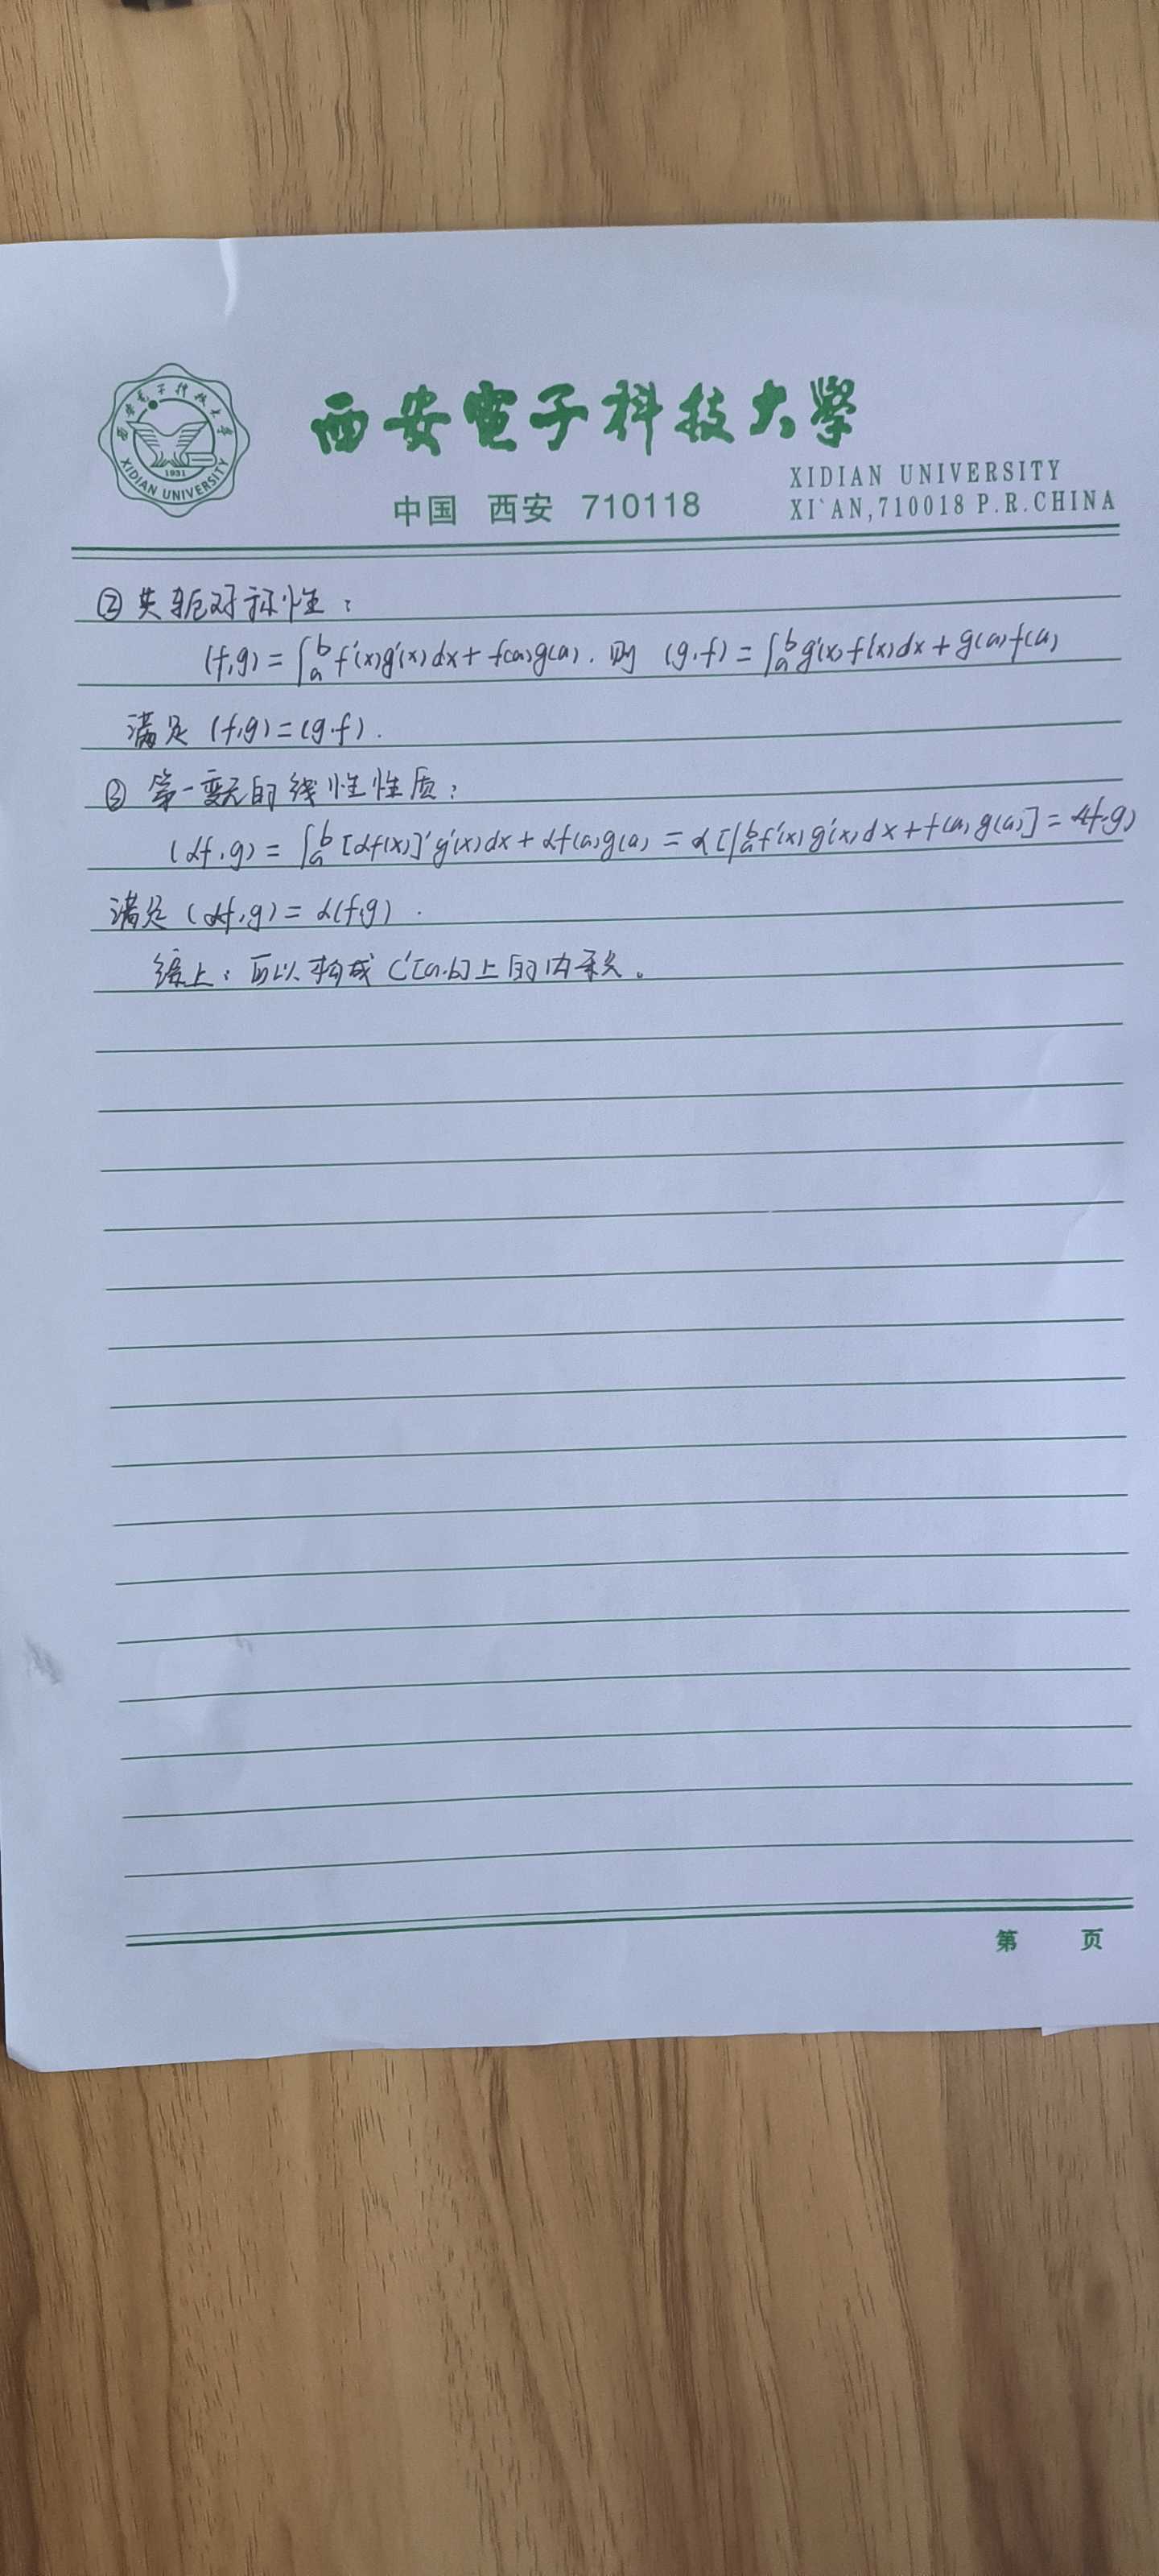 西安電子科技大學
XIDIAN UNIVERSITY
1931
XIDIAN UNIVERSITY
中国 西安 710118
XI`AN,710018 P.R.CHINA
② 共轭对称性：
(f,g) = ∫ₐᵇ f'(x)g'(x)dx + f(a)g(a). 则 (g.f) = ∫ₐᵇ g'(x)f'(x)dx + g(a)f(a)
满足 (f,g)=(g.f).
③ 第一变元的线性性质：
(αf,g) = ∫ₐᵇ [αf(x)]'g'(x)dx + αf(a)g(a) = α[∫ₐᵇ f'(x)g'(x)dx + f(a)g(a)] = α(f,g)
满足 (αf,g) = α(f,g).
综上：可以构成 C'[a.b]上的内积。
第 页